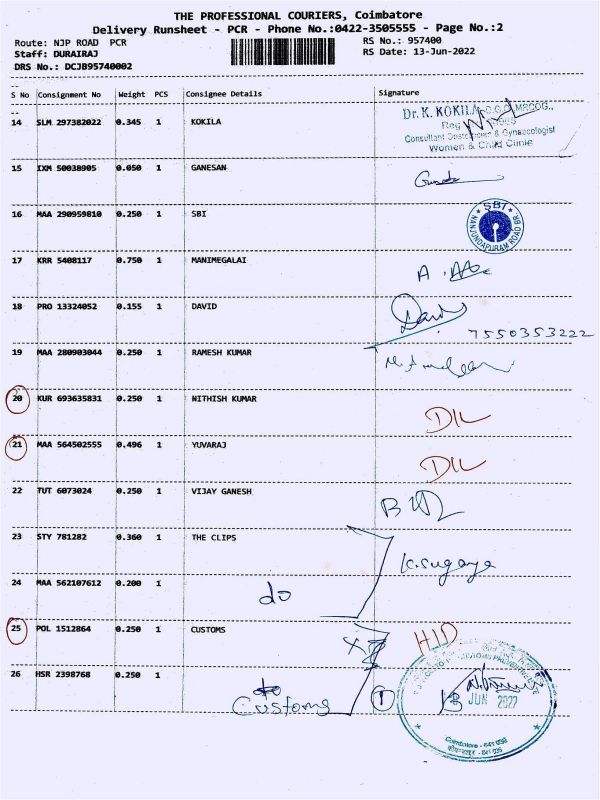 THE PROFESSIONAL COURIERS, Coimbatore
Delivery Runsheet - PCR - Phone No.:0422-3505555 - Page No.:2
Route: NJP ROAD PCR
RS No.: 957400
Staff: DURAIRAJ
RS Date: 13-Jun-2022
DRS No.: DCJB95740002
S No Consignment No Weight PCS Consignee Details Signature
14 SLM 297382022 0.345 1 KOKILA
Dr. K. KOKILA
Consultant & Gynaecologist
Women & Child Clinic
15 IXM 50038905 0.050 1 GANESAN
16 MAA 290959810 0.250 1 SBI
SBI
NANJUNDAPURAM ROAD BR.
17 KRR 5408117 0.750 1 MANIMEGALAI
18 PRO 13324052 0.155 1 DAVID
7550353222
19 MAA 280903044 0.250 1 RAMESH KUMAR
20 KUR 693635831 0.250 1 NITHISH KUMAR
DIL
21 MAA 564502555 0.496 1 YUVARAJ
DIL
22 TUT 6073024 0.250 1 VIJAY GANESH
23 STY 781282 0.360 1 THE CLIPS
K.Sugaya
24 MAA 562107612 0.200 1
do
25 POL 1512864 0.250 1 CUSTOMS
HID
26 HSR 2398768 0.250 1
Customs
1
13 JUN 2022
Coimbatore - 641 018